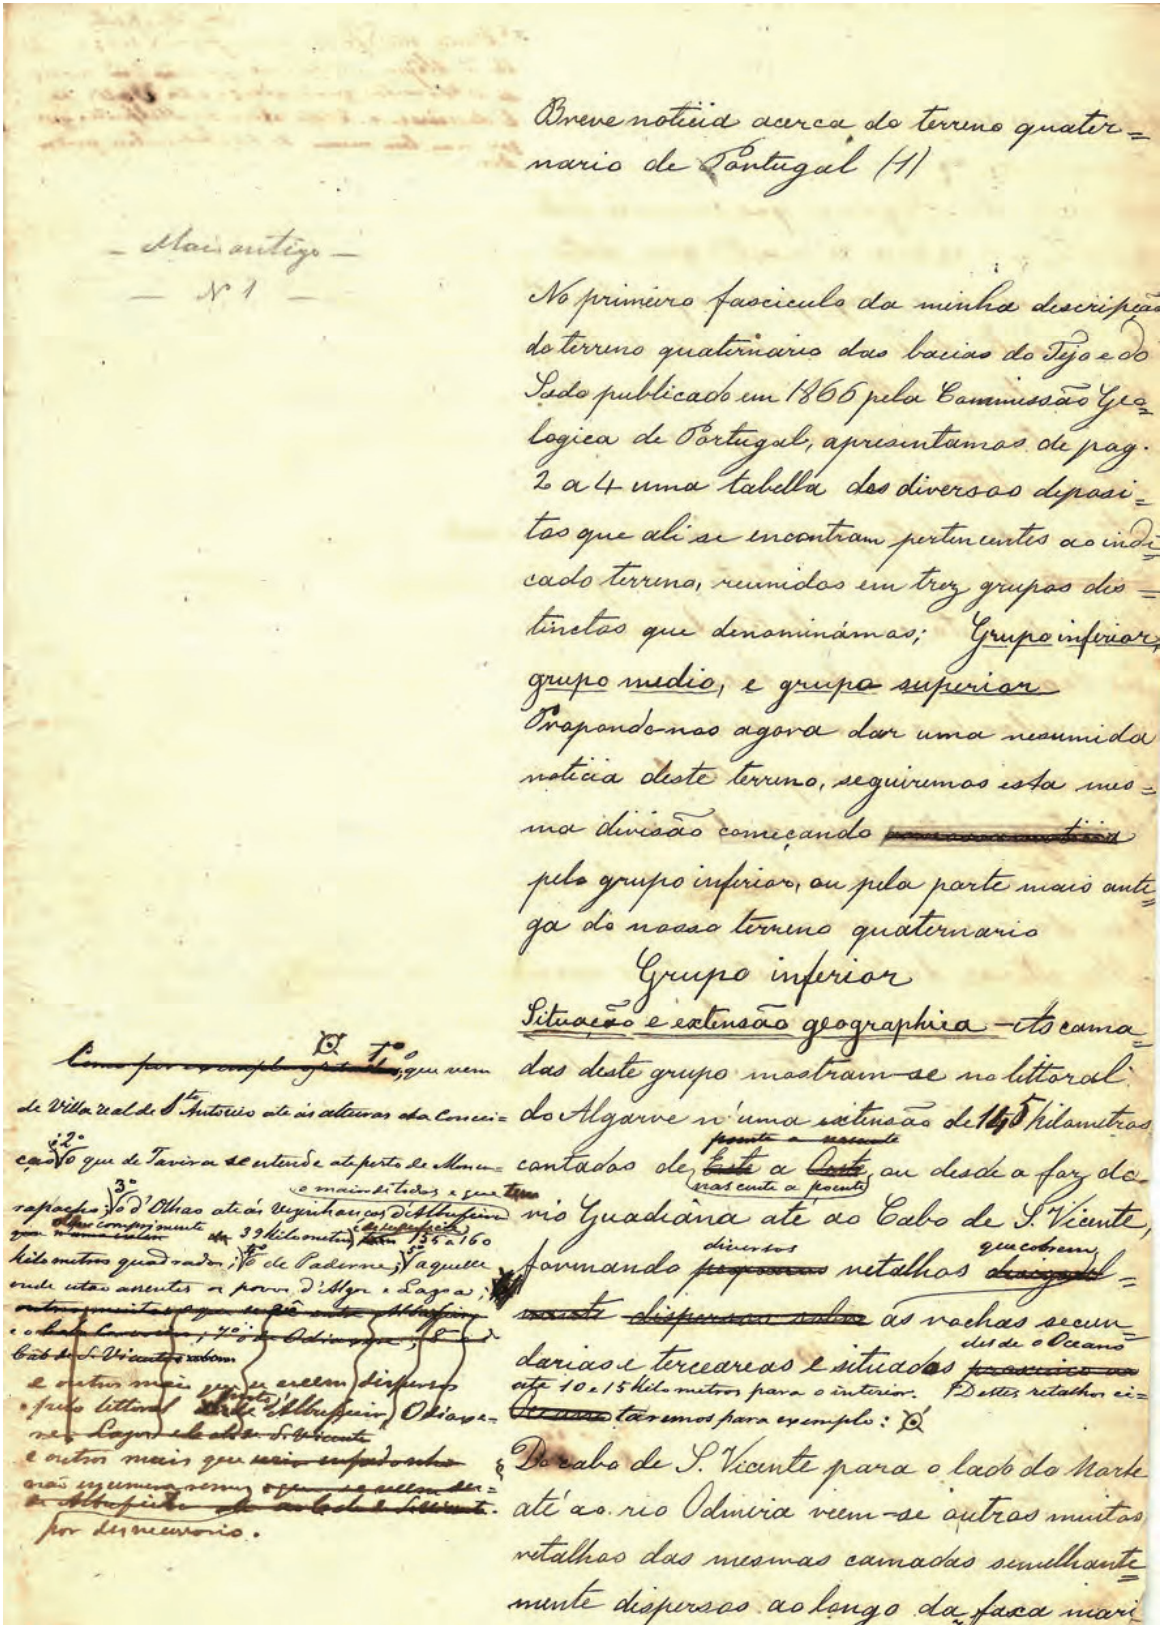 Breve noticia acerca do terreno quater=
nario de Portugal (1)
— Mais antigo —
— Nº 1 —
No primeiro fasciculo da minha descripção
do terreno quaternario das bacias do Tejo e do
Sado publicado em 1866 pela Commissão Geo=
logica de Portugal, apresentamos de pag.
2 a 4 uma tabella dos diversos deposi=
tos que ali se encontram pertencentes ao indi=
cado terreno, reunidos em trez grupos dis=
tinctos que denominámos; Grupo inferior,
grupo medio, e grupo superior
Propondo-nos agora dar uma resumida
noticia deste terreno, seguiremos esta mes=
ma divisão começando
pelo grupo inferior, ou pela parte mais anti=
ga do nosso terreno quaternario
Grupo inferior
Situação e extensão geographica — As cama=
das deste grupo mostram-se no littoral
do Algarve n'uma extensão de 145 kilometros
poente a nascente
contados de Este a Oeste, ou desde a foz do
nascente a poente
rio Guadiana até ao Cabo de S. Vicente,
diversos que cobrem
formando pequenos retalhos
dispersos sobre ás rochas secun=
desde o Oceano
darias e terceareas e situados proximo ao
até 10 e 15 kilometros para o interior. Destes retalhos ci=
Oceano taremos para exemplo:
Do cabo de S. Vicente para o lado do Norte
até ao rio Odmira veem-se outros muitos
retalhos das mesmas camadas semelhante=
mente dispersos ao longo da faxa mari=
Como por exemplo 1º, que vem
de Villa real de Sto Antonio até ás alturas da Concei=
ção; 2º o que de Tavira se estende até perto de Mon=
o mais ditados e que tem
rapacho; 3º o d'Olhão até ás visinhanças d'Albufeira
comprimento de 39 kilometros 155 a 160
kilometros quadrados; 4º o de Paderne; 5º aquelle
onde estão assentes os povos d'Algoz e Lagoa;
7º o de Odiaxere, 8º
Cabo de S. Vicente
e outros mais que se veem dispersos
pelo littoral d'Albufeira, Odiaxe=
re, Lagos
e outros mais que seria enfadonho
não enumeraremos
por desnecessario.